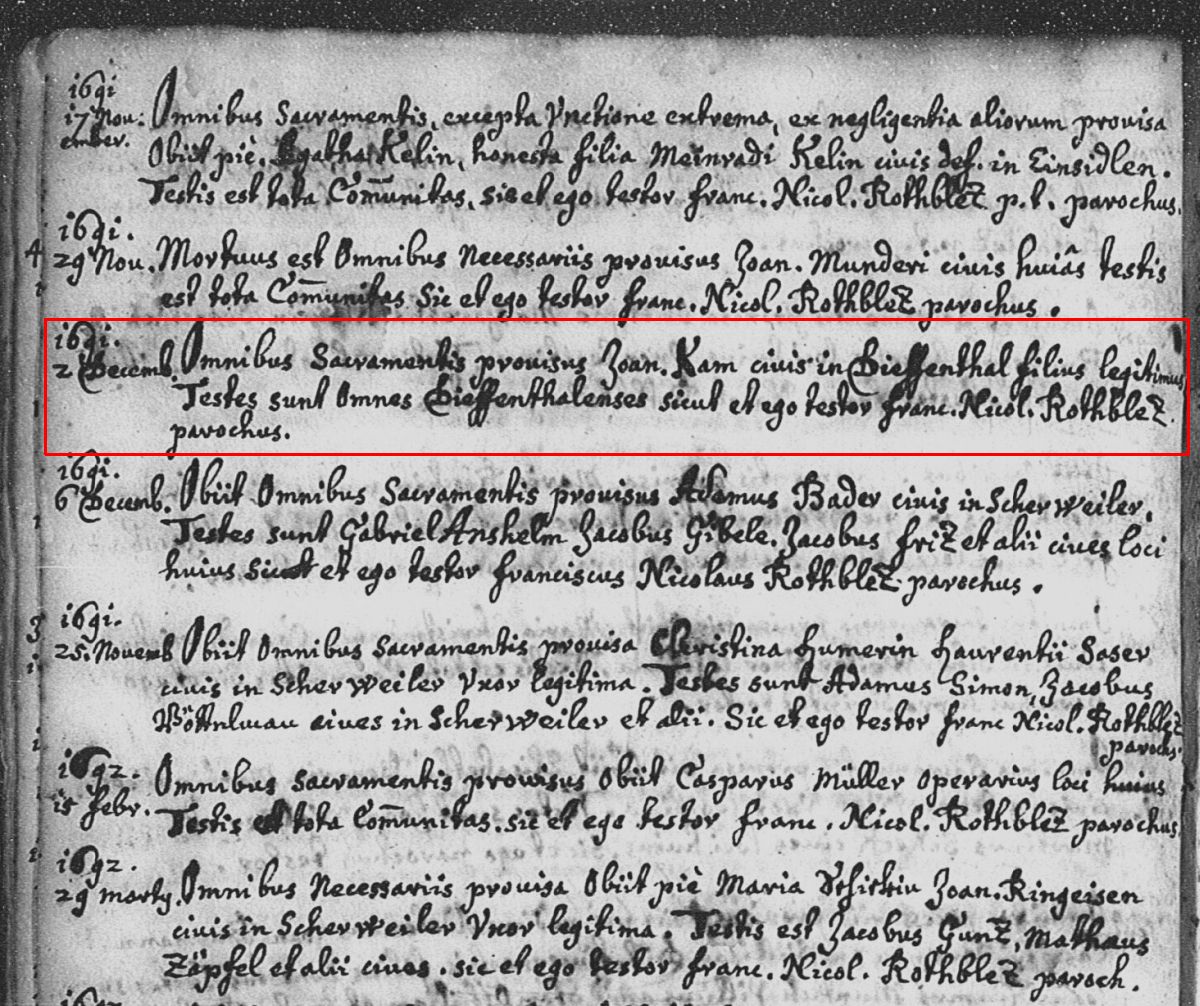 1691
17 Nov: Omnibus Sacramentis, excepta Unctione extrema, ex negligentia aliorum provisa
ember. Obiit piè, Agatha Kelin, honesta filia Meinradi Kelin civis def. in Einsidlen.
Testis est tota Com̄unitas, sic et ego testor franc. Nicol. Rothblez p.t. parochus.
1691.
29 Nov. Mortuus est Omnibus Necessariis provisus Joan. Munderi civis huiâs testis
est tota Com̄unitas Sic et ego testor franc. Nicol. Rothblez parochus.
1691.
2 Decemb. Omnibus Sacramentis provisus Joan. Kam civis in Dieffenthal filius legitimus
Testes sunt Omnes Dieffenthalenses sicut et ego testor franc. Nicol. Rothblez.
parochus.
1691.
6 Decemb. Obiit Omnibus Sacramentis provisus Adamus Bader civis in Scherweiler.
Testes sunt Gabriel Anshelm Jacobus Gibele. Jacobus friz et alii cives loci
huius sicut et ego testor franciscus Nicolaus Rothblez parochus.
1691.
25. Novemb Obiit Omnibus Sacramentis provisa Christina Humerin Laurentii Saser
civis in Scherweiler Uxor legitima. Testes sunt Adamus Simon, Jacobus
cives in Scherweiler et alii. Sic et ego testor franc Nicol. Rothblez
parochs.
1692.
15 febr. Omnibus Sacramentis provisus obiit Casparus Müller operarius loci huius
Testis est tota Com̄unitas. sic et ego testor franc. Nicol. Rothblez parochus
1692.
29 marty. Omnibus Necessariis provisa Obiit piè Maria Joan. Ringeisen
civis in Scherweiler Uxor legitima. Testis est Jacobus Gunz, Mathaus
Zäpfel et alii cives. sic et ego testor franc. Nicol. Rothblez paroch.